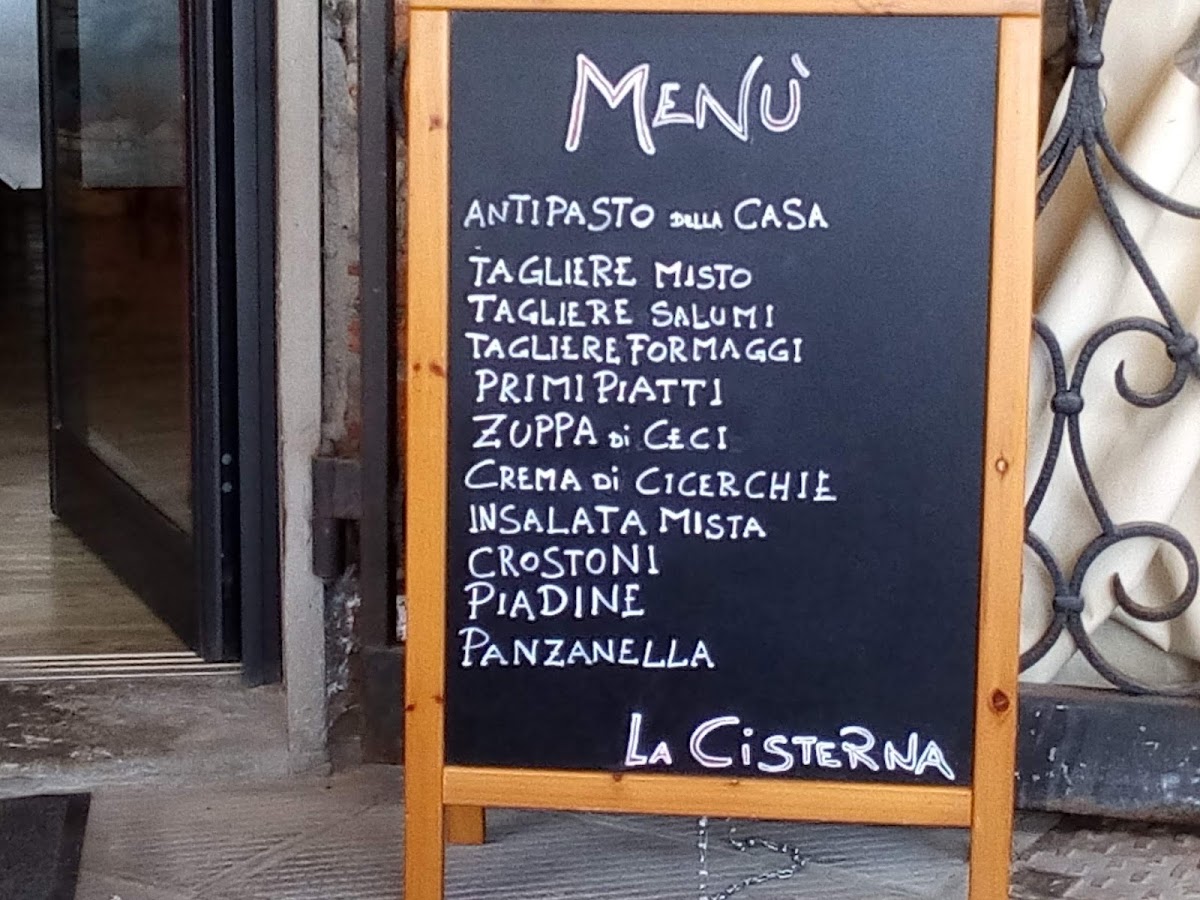 MENÙ
ANTIPASTO DELLA CASA
TAGLIERE MISTO
TAGLIERE SALUMI
TAGLIERE FORMAGGI
PRIMI PIATTI
ZUPPA Di CECI
CREMA Di CICERCHIE
INSALATA MISTA
CROSTONI
PIADINE
PANZANELLA
LA CiSTERNA